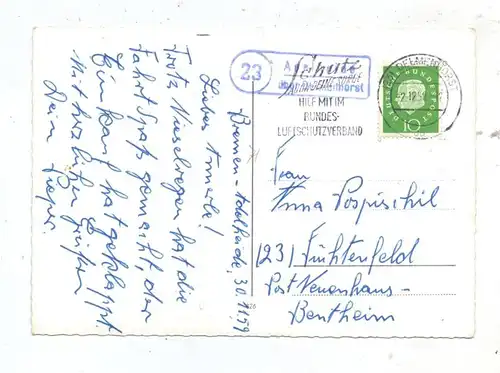 Bremen-Adelheide, 30.11.59
Liebes Annerle!
Trotz Nieselregen hat die
Fahrt Spaß gemacht, der
Einkauf hat geklappt.
Mit herzlichen Grüßen
Dein
23
A
über
horst
Schütz
HILF MIT IM
BUNDES-
LUFTSCHUTZVERBAND
DELMENHORST
DEUTSCHE BUNDESPOST
10
Frau
Anna Pospischil
(23) Füchtenfeld
Post Neuenhaus-
Bentheim